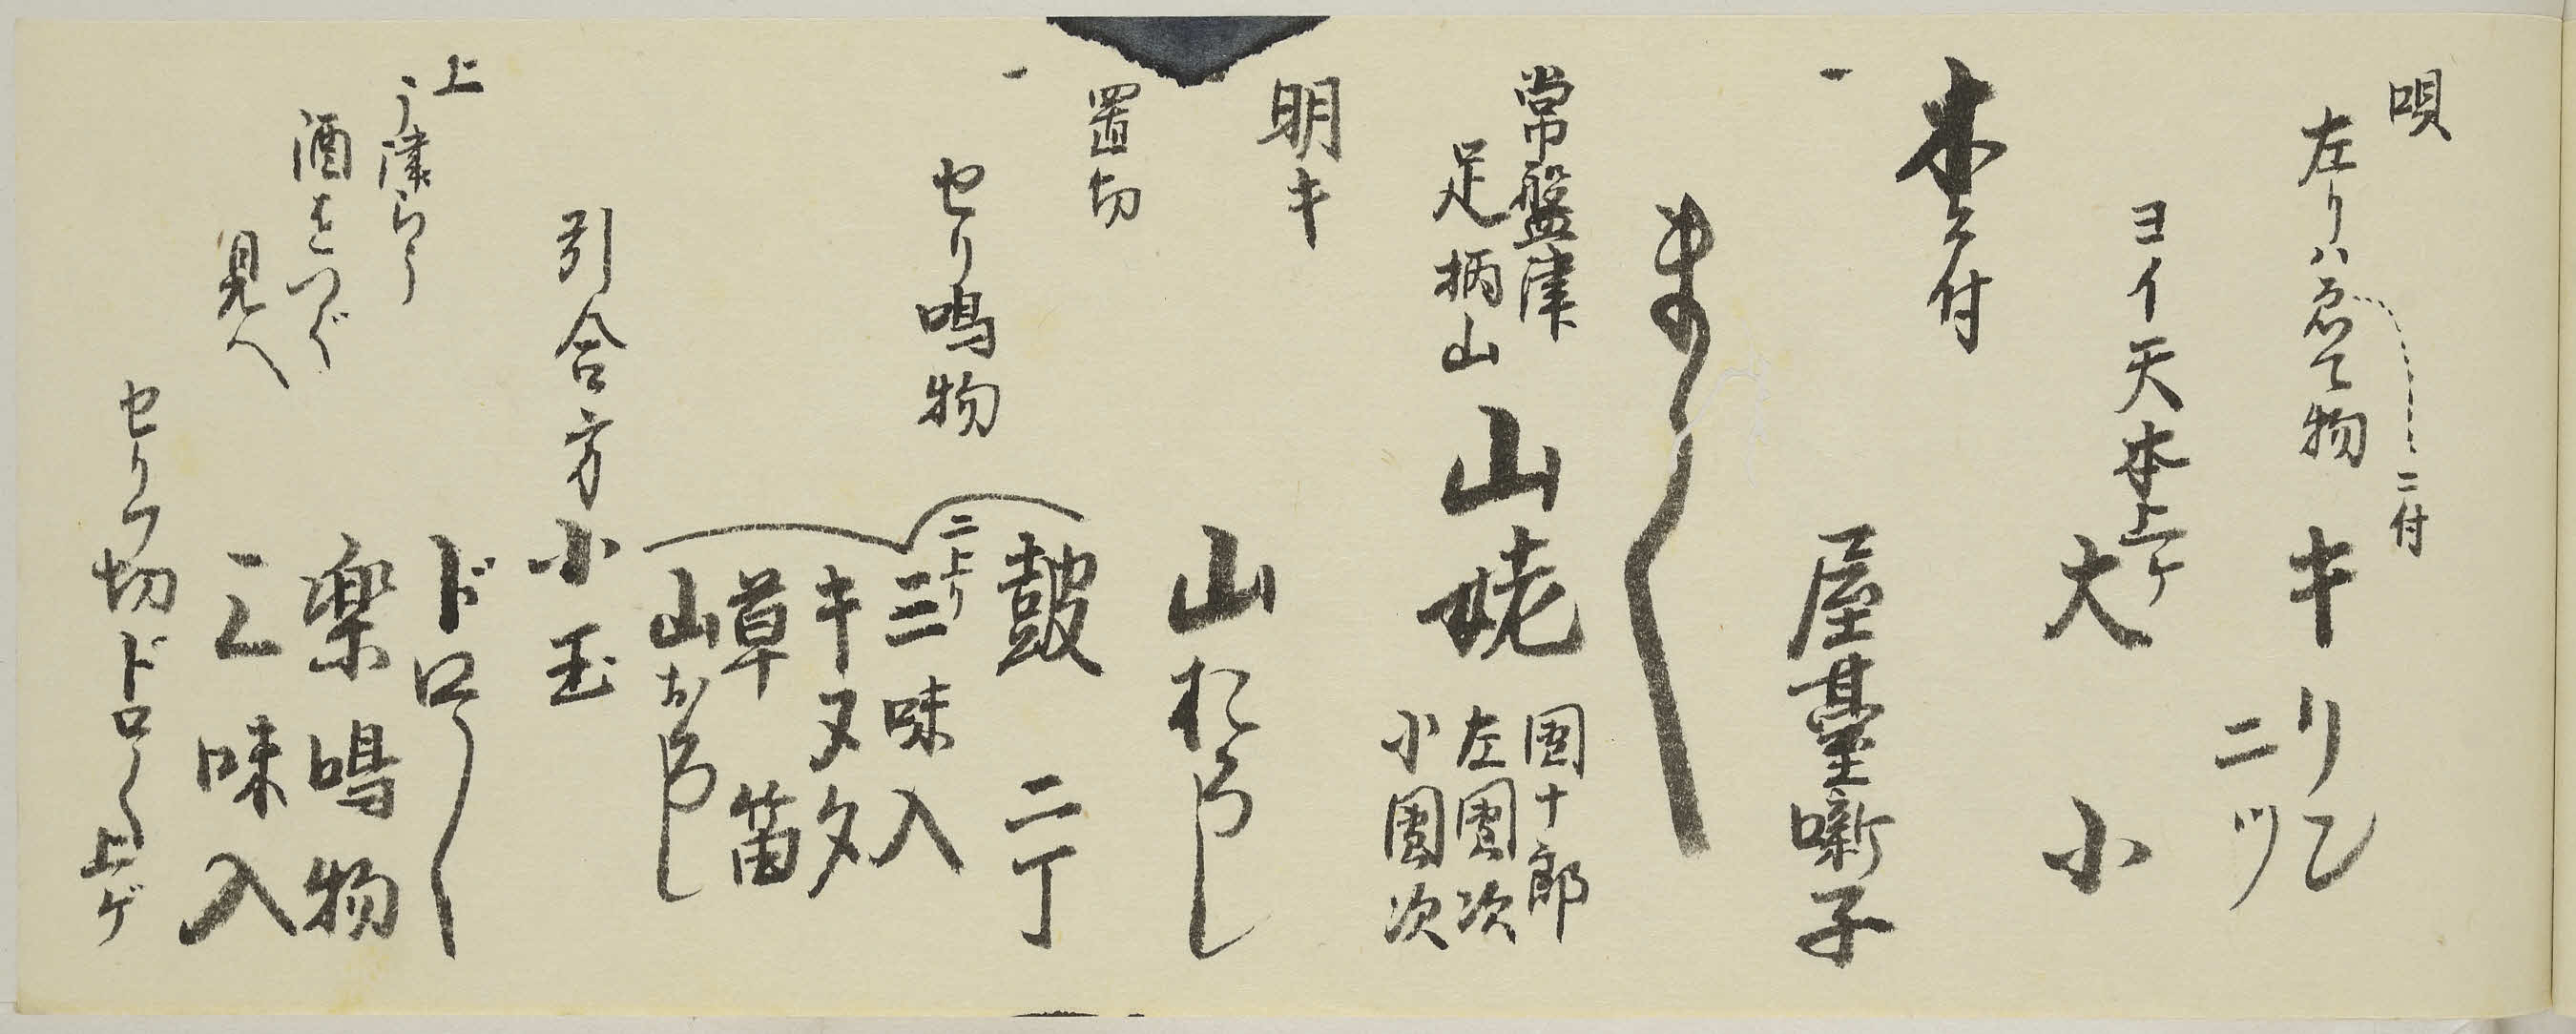 唄
左りハ
物
ニ付
キリ
二ツ
ヨイ天木上ケ
大小
木ニ付
一
屋臺囃子
常盤津
足柄山
山姥
団十郎
左團次
小團次
明キ
山おろし
置切
鼓 二丁
一
セリ鳴物
二上リ
三味入
キヌタ
草笛
山おろし
引合方
小玉
ドロ〱
上
酒をつぐ
見へ
楽鳴物
三味入
セリフ切ドロ〱上ゲ